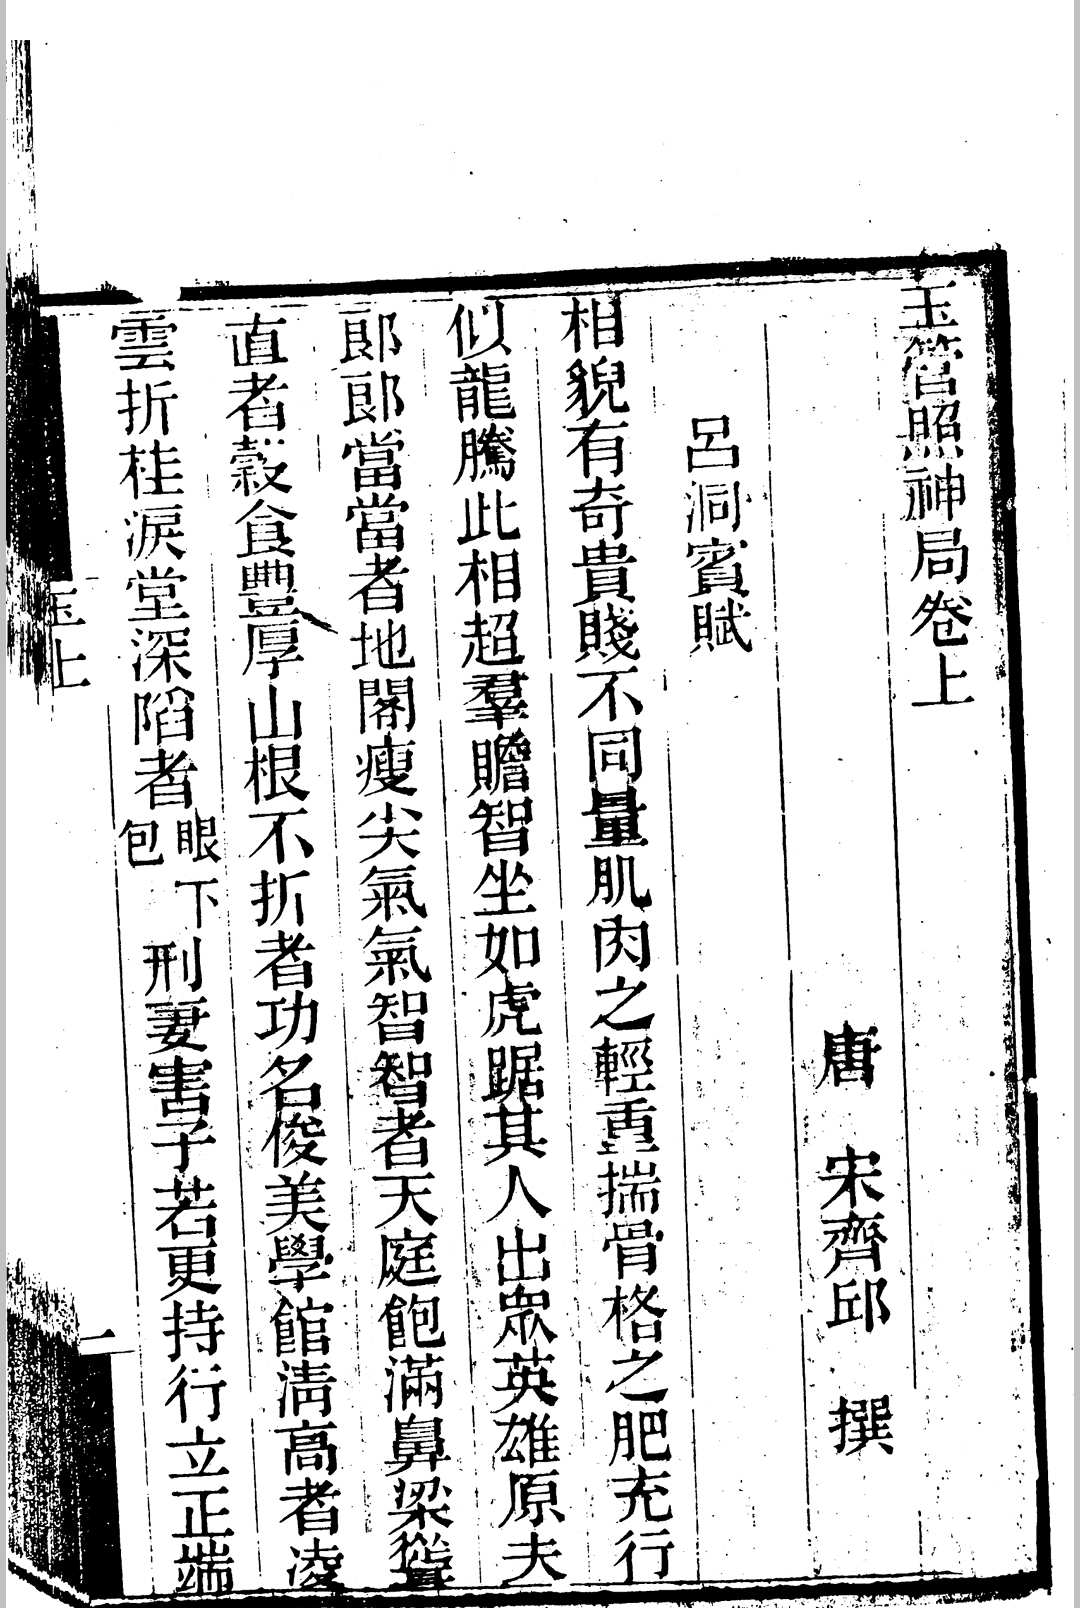 玉管照神局卷上
唐 宋齊邱 撰
呂洞賓賦
相貌有奇貴賤不同量肌肉之輕重揣骨格之肥充行
似龍騰此相超羣贍智坐如虎踞其人出眾英雄原夫
郎郎當當者地閣瘦尖氣氣智智者天庭飽滿鼻梁聳
直者穀食豐厚山根不折者功名俊美學館清高者凌
雲折桂淚堂深陷者眼下包刑妻害子若更持行立正端
玉上
一